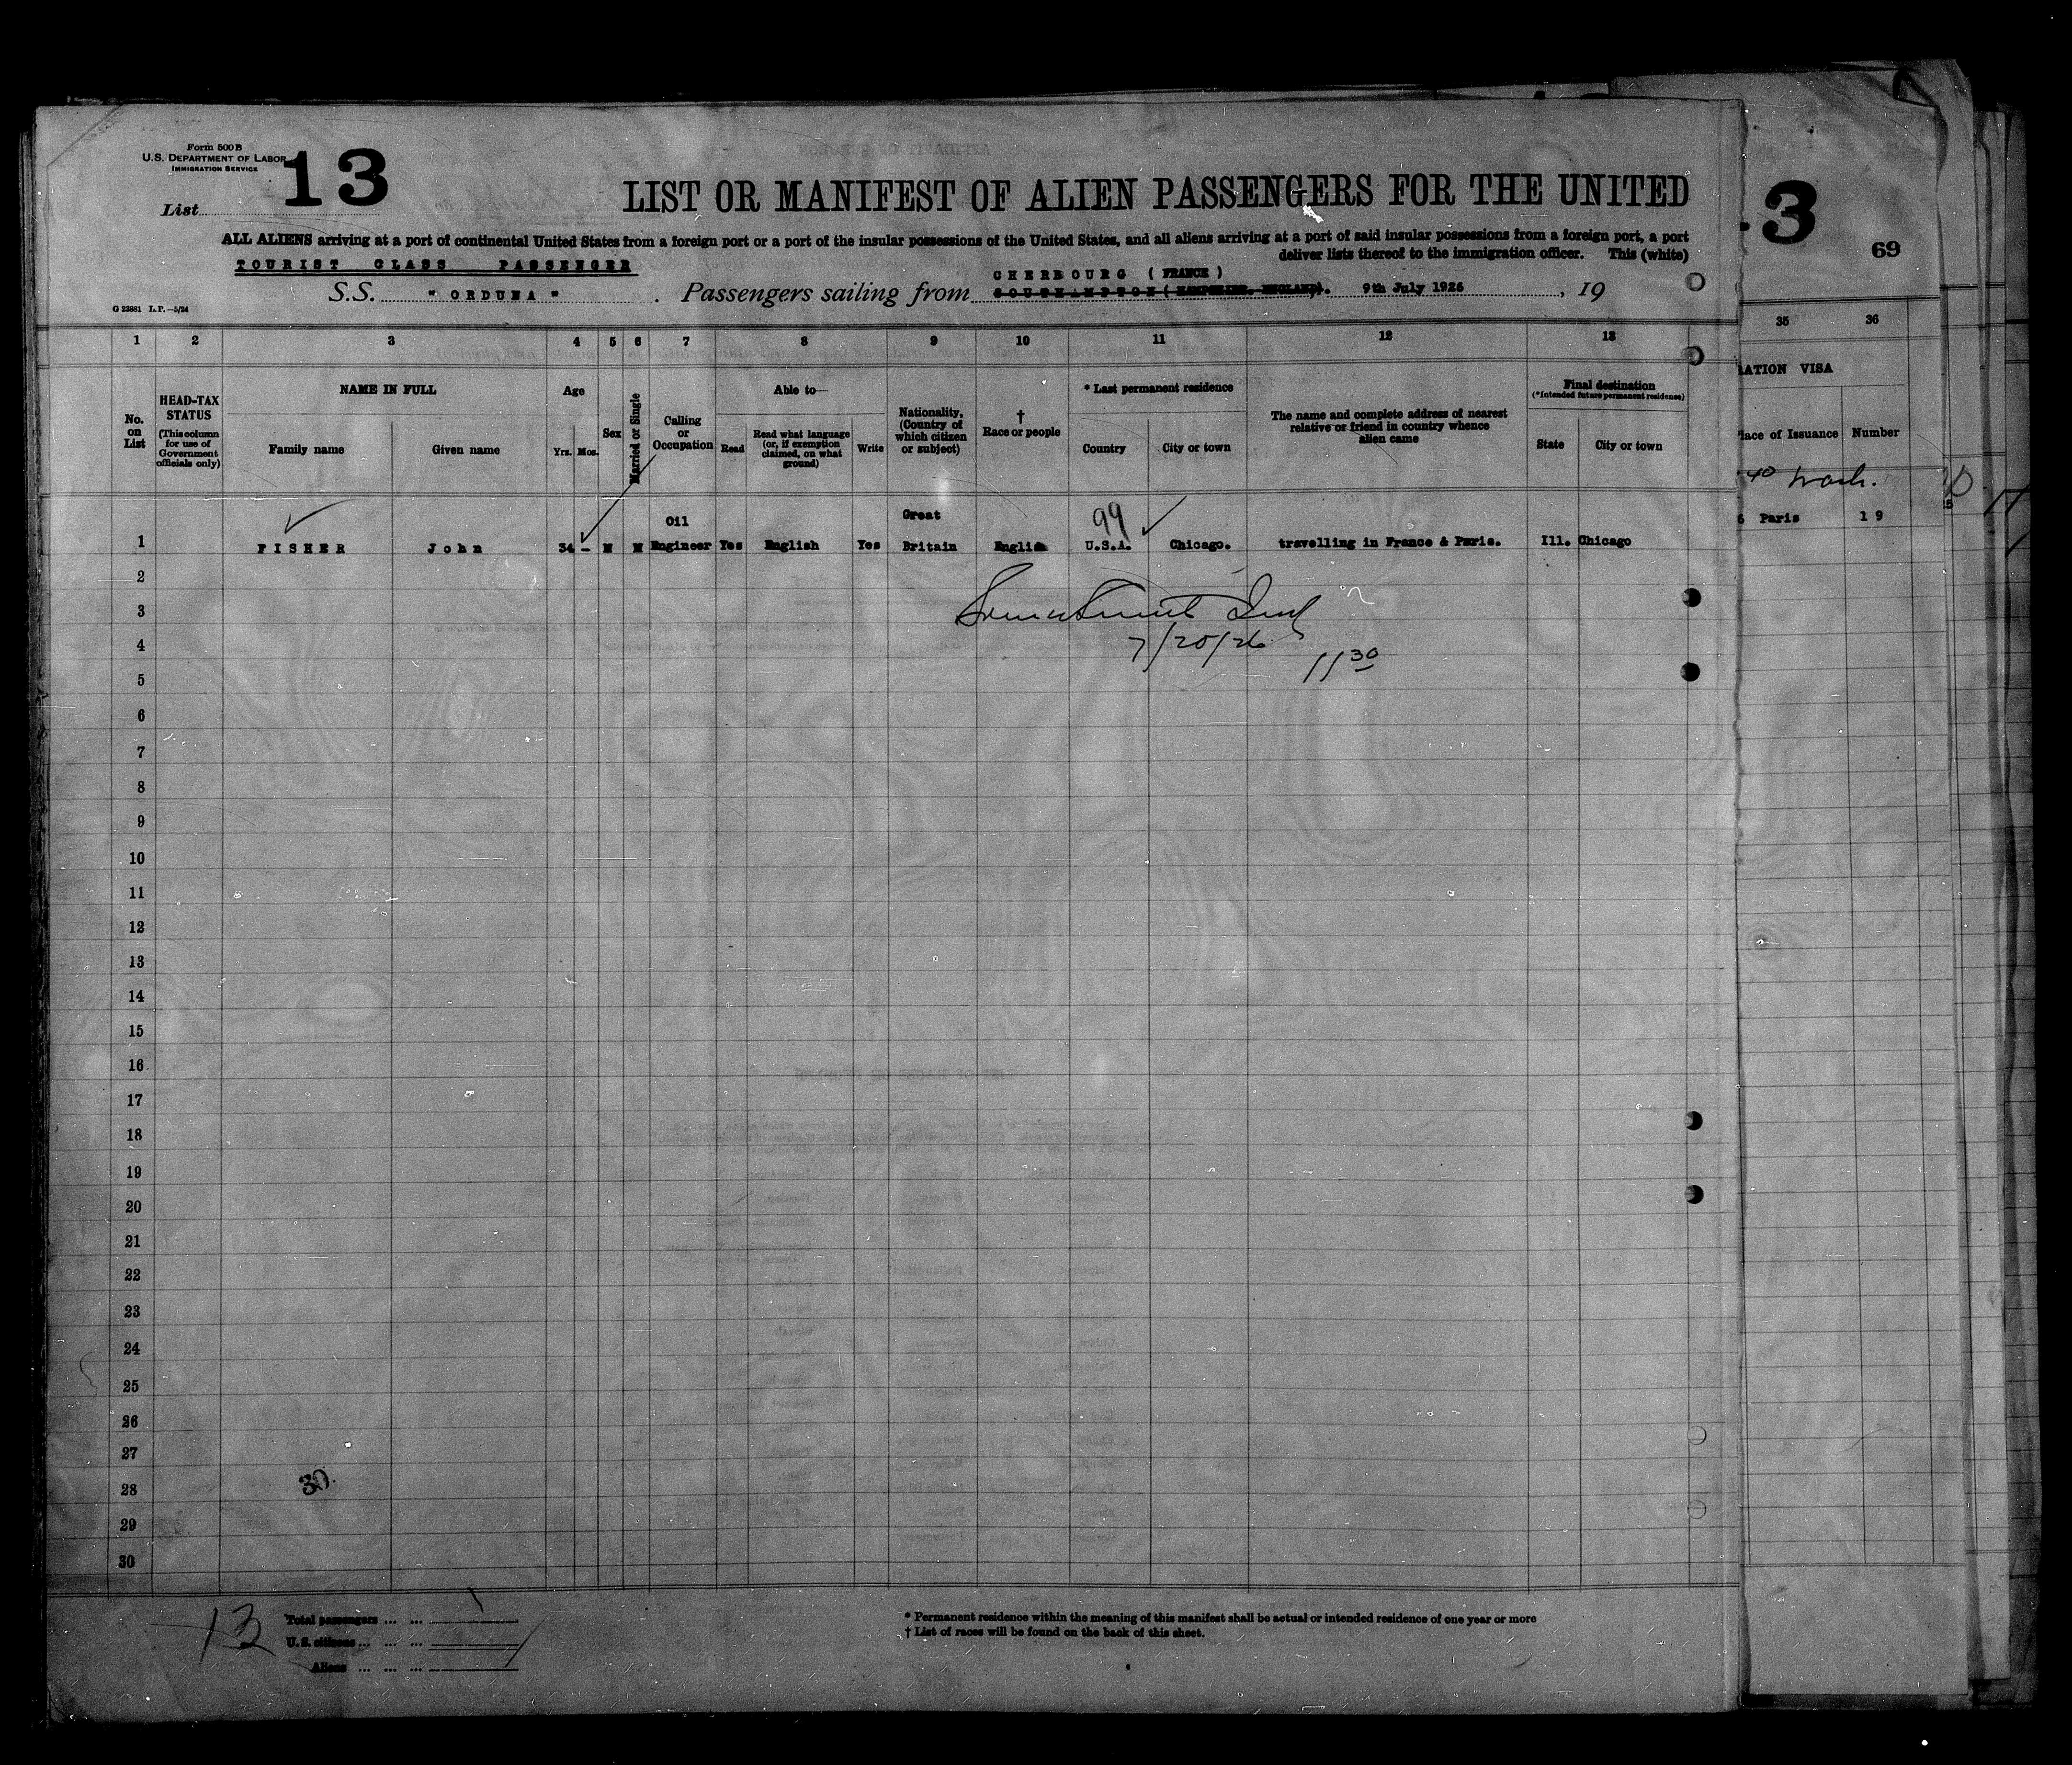 Form 500 B
U.S. DEPARTMENT OF LABOR
IMMIGRATION SERVICE
List 13
LIST OR MANIFEST OF ALIEN PASSENGERS FOR THE UNITED
ALL ALIENS arriving at a port of continental United States from a foreign port or a port of the insular possessions of the United States, and all aliens arriving at a port of said insular possessions from a foreign port, a port
deliver lists thereof to the immigration officer. This (white)
TOURIST CLASS PASSENGER
CHERBOURG ( FRANCE )
S.S. " ORDUNA ". Passengers sailing from SOUTHAMPTON ( HAMPSHIRE, ENGLAND). 9th July 1926, 19
G 23881 L.P.—5/24
3
69
1 2 3 4 5 6 7 8 9 10 11 12 13
35 36
No. on List
HEAD-TAX STATUS
(This column for use of Government officials only)
NAME IN FULL
Family name
Given name
Age
Yrs. Mos.
Sex
Married or Single
Calling or Occupation
Able to—
Read
Read what language (or, if exemption claimed, on what ground)
Write
Nationality, (Country of which citizen or subject)
† Race or people
* Last permanent residence
Country
City or town
The name and complete address of nearest relative or friend in country whence alien came
Final destination
(*Intended future permanent residence)
State
City or town
ATION VISA
lace of Issuance
Number
1 FISHER John 34 - M M Oil Engineer Yes English Yes Great Britain English U.S.A. Chicago. travelling in France & Paris. Ill. Chicago
99
6 Paris 19
2
3
4
7/20/26
11 30
5
6
7
8
9
10
11
12
13
14
15
16
17
18
19
20
21
22
23
24
25
26
27
28
29
30
30.
13
Total passengers ... ...
U. S. citizens ... ... ...
Aliens ... ... ...
* Permanent residence within the meaning of this manifest shall be actual or intended residence of one year or more
† List of races will be found on the back of this sheet.